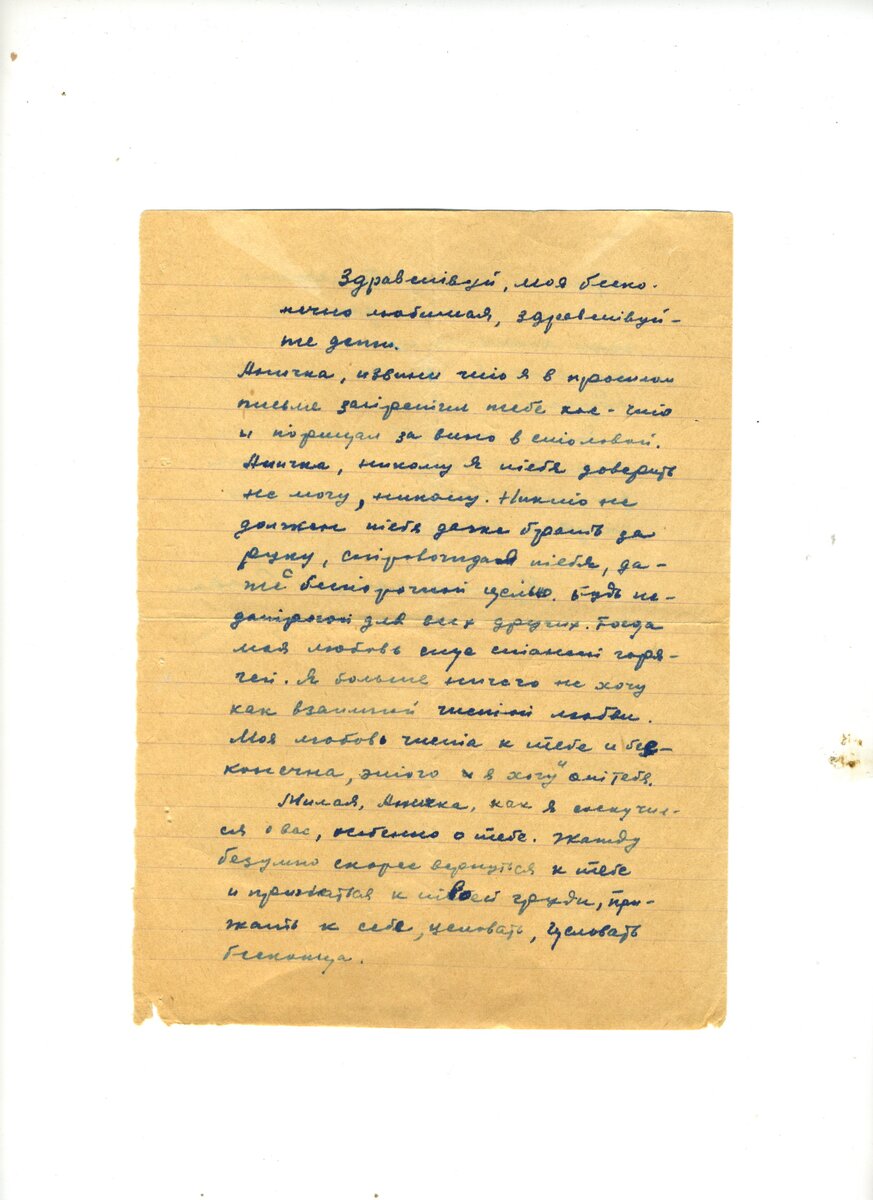 Здравствуй, моя беско-
нечно любимая, здравствуй-
те дети.
Аничка, извини что я в прошлом
письме запретил тебе кое-что
и порицал за вино в столовой.
Аничка, никому я тебя доверить
не могу, никому. Никто не
должен тебя даже брать за
руку, сопровождая тебя, да-
же с беспорочной целью. Будь не-
дотрогой для всех других. Тогда
моя любовь еще станет горя-
чей. Я больше ничего не хочу
как взаимной чистой любви.
Моя любовь чиста к тебе и без-
конечна, этого и я хочу от тебя.
Милая, Аничка, как я соскучил-
ся о вас, особенно о тебе. Жажду
безумно скорее вернуться к тебе
и прижаться к твоей груди, при-
жать к себе, целовать, целовать
бесконца.